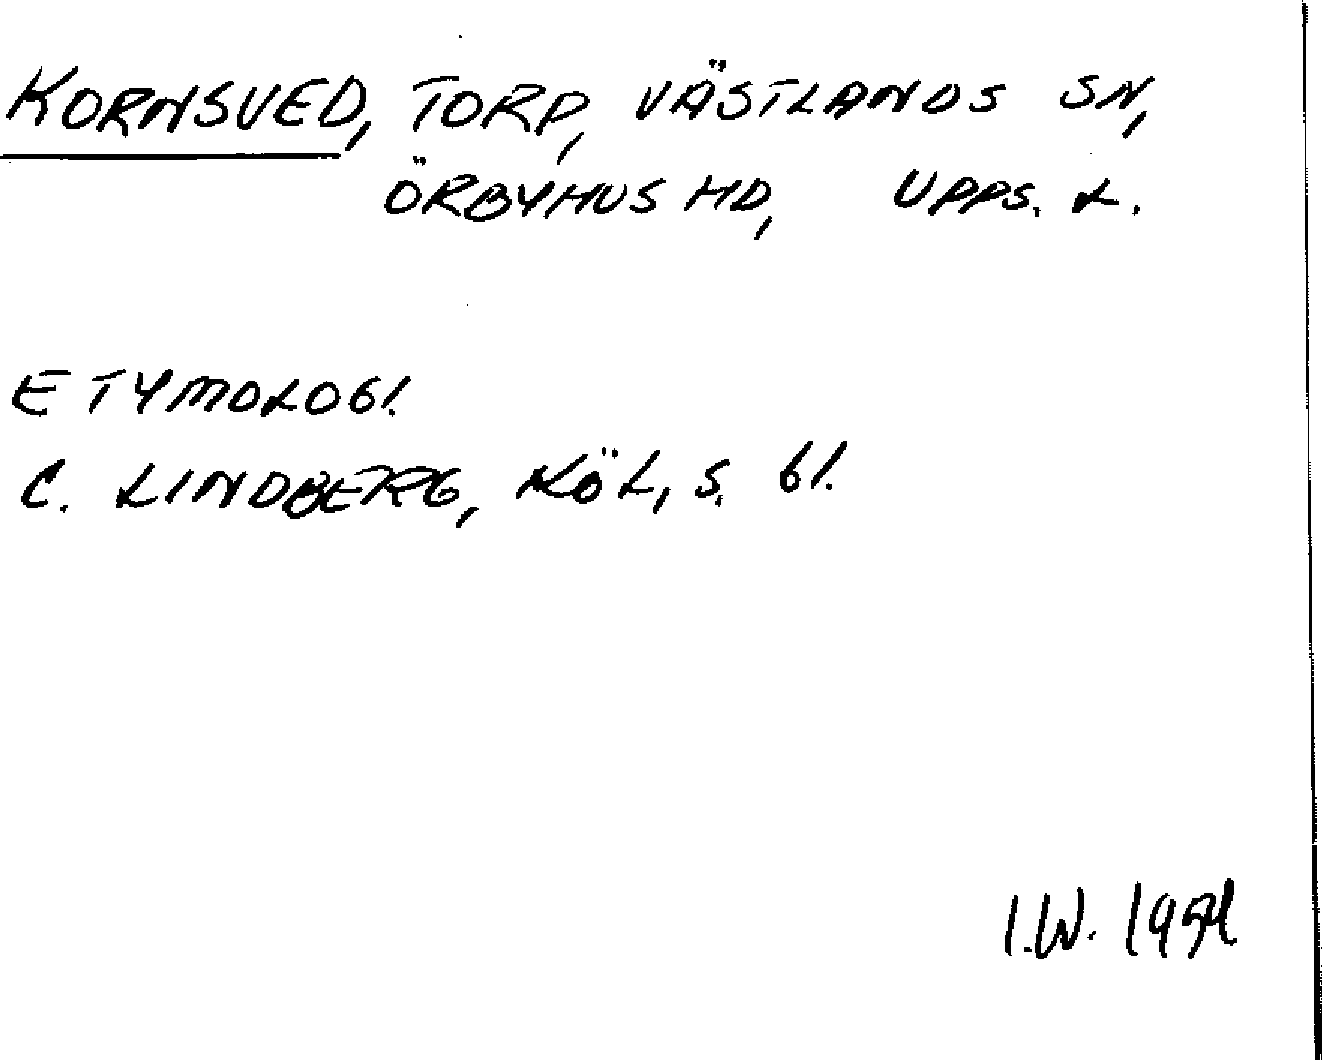 KORNSVED, TORP, VÄSTLANDS SN,
ÖRBYHUS HD, UPPS. L.
ETYMOLOGI.
C. LINDBERG, KÖL, S. 61.
I.W.